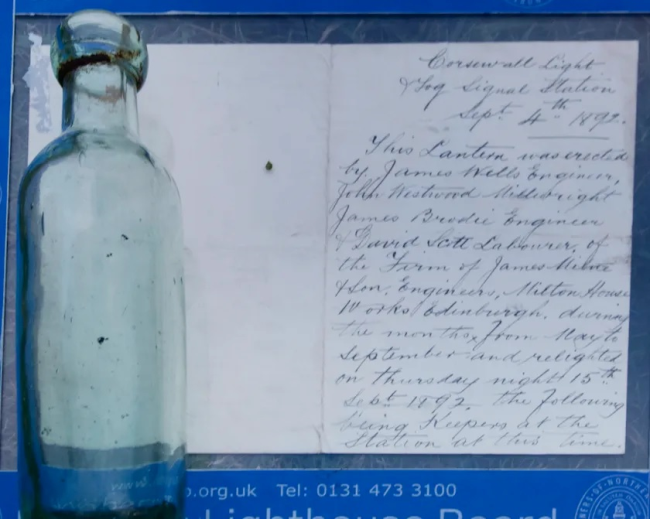 Corsewall Light
& Fog Signal Station
Sept. 4th 1892.
This Lantern was erected
by James Wells Engineer,
John Westwood Millwright
James Brodie Engineer
& David Scott Labourer, of
the Firm of James Milne
& Son, Engineers, Milton House
Works Edinburgh. during
the months from May to
September and relighted
on Thursday night 15th
Sept 1892. the following
being Keepers at the
Station at this time.
.org.uk Tel: 0131 473 3100
Lighthouse Board